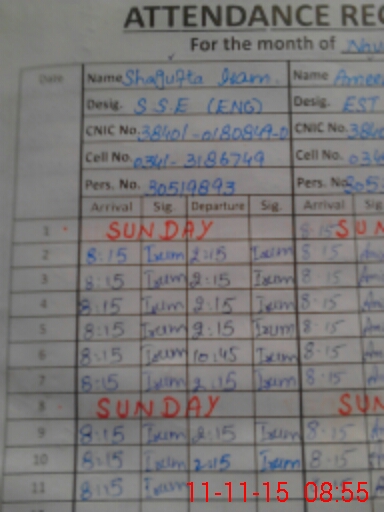 ATTENDANCE REC
For the month of Nov
Date Name Shagufta Iram. Name Amee
Desig. S.S.E (ENG) Desig. EST
CNIC No. 38401-0180849-0 CNIC No. 3840
Cell No. 0341-3186749 Cell No. 034
Pers. No. 30519893 Pers. No. 305
Arrival Sig. Departure Sig. Arrival Sig
1 SUNDAY 8:15 SUN
2 8:15 Irum 2:15 Irum 8:15
3 8:15 Irum 2:15 Irum 8:15
4 8:15 Irum 2:15 Irum 8:15
5 8:15 Irum 2:15 Irum 8:15
6 8:15 Irum 10:45 Irum 8:15
7 8:15 Irum 2:15 Irum 8:15
8 SUNDAY SUN
9 8:15 Irum 2:15 Irum 8:15
10 8:15 Irum 2:15 Irum 8:15
11 8:15 Irum
11-11-15 08:55